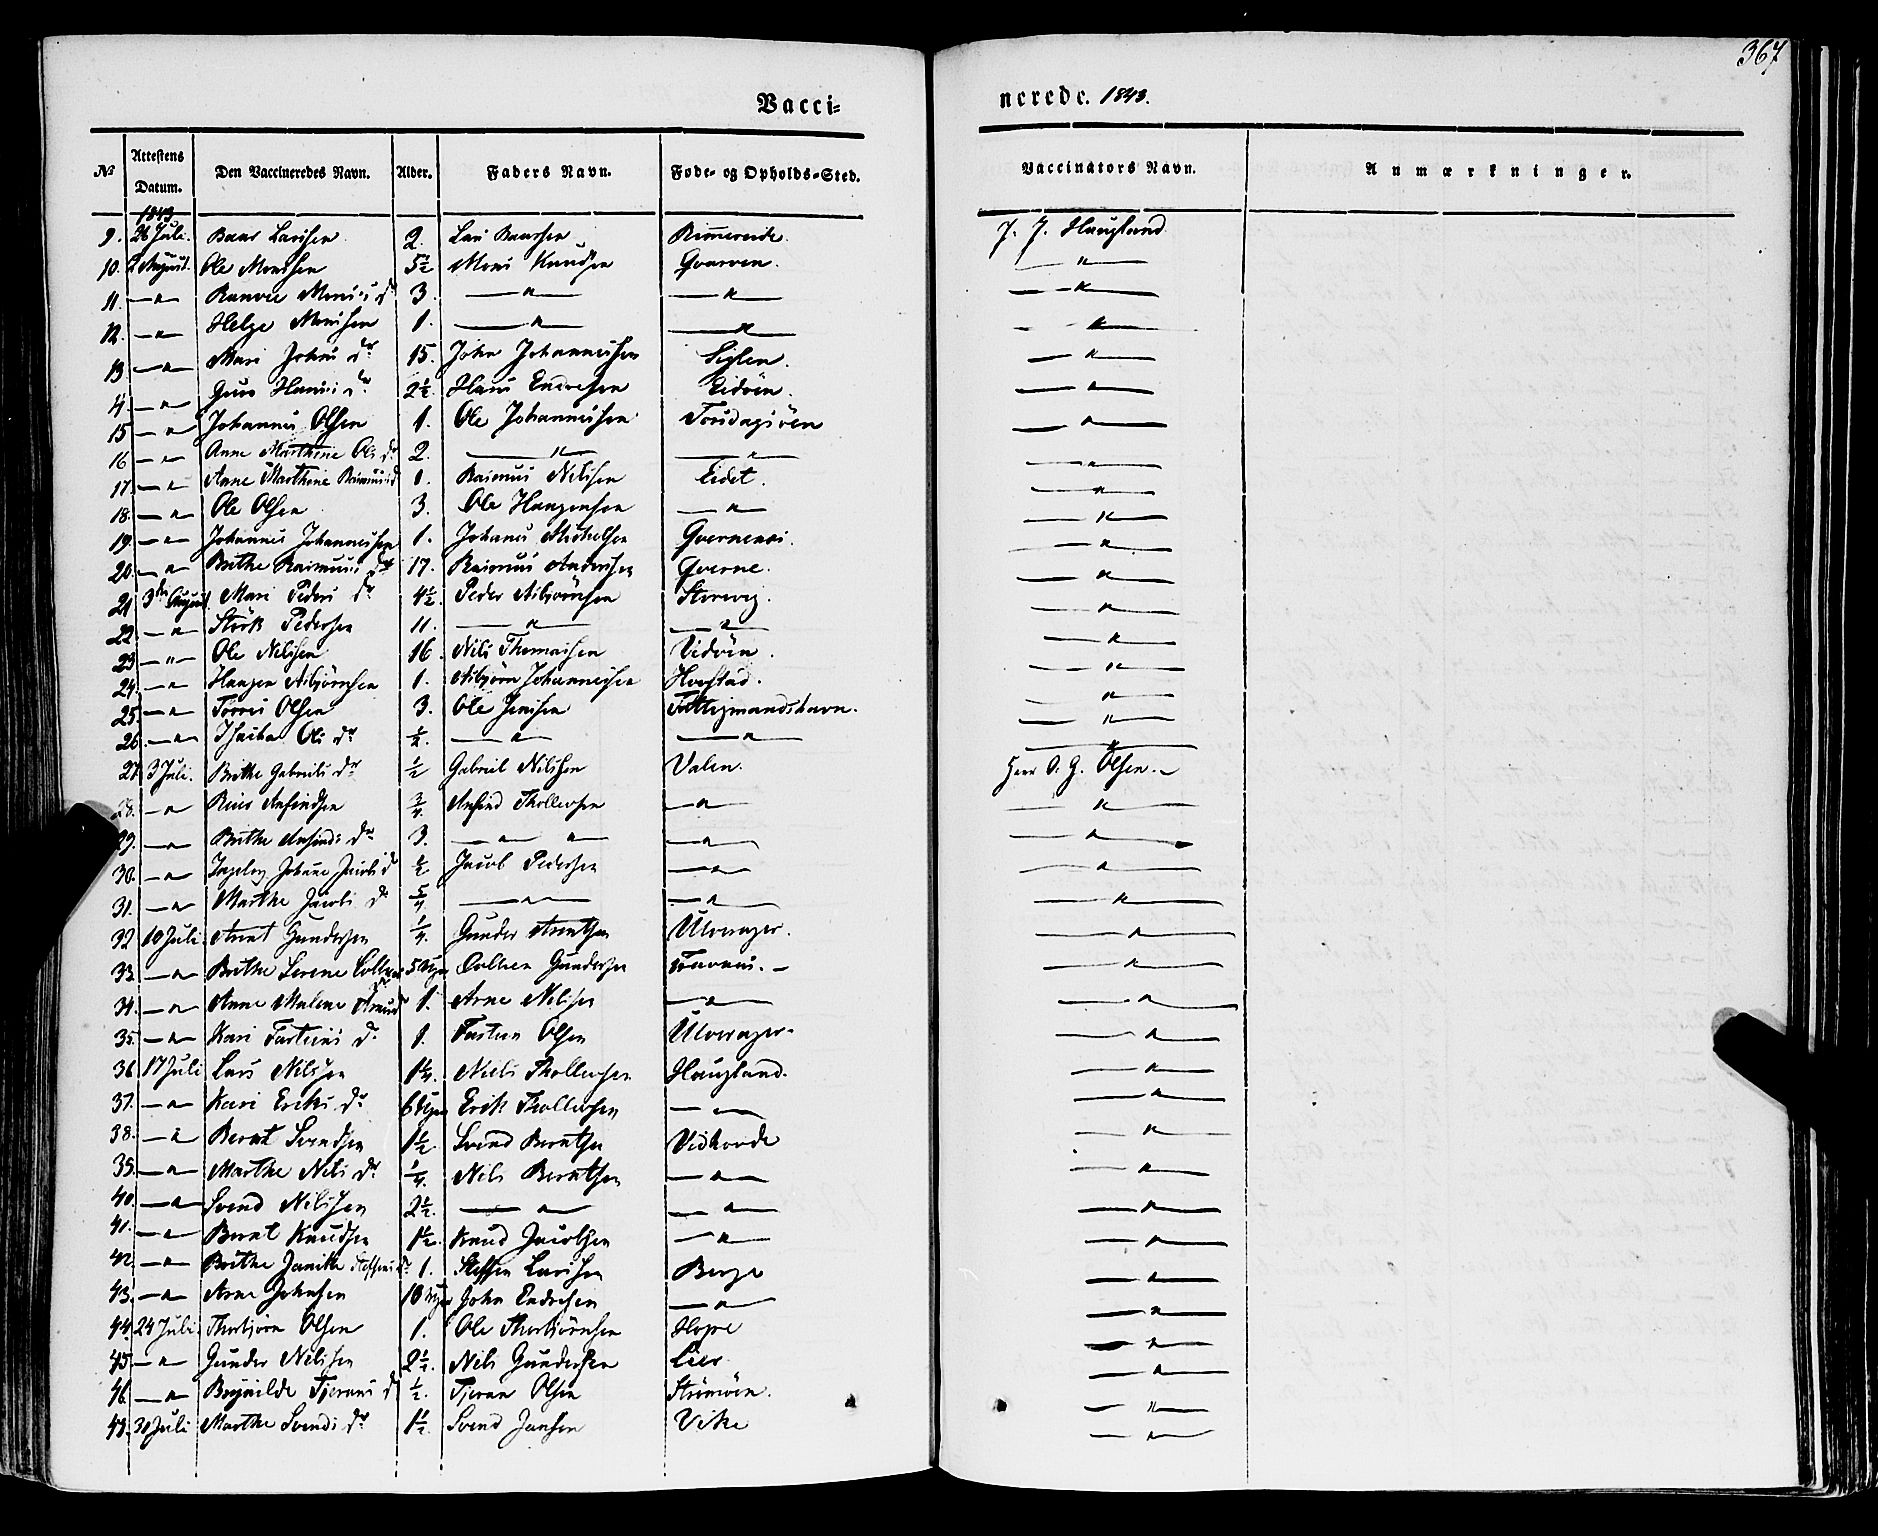 367
Vacci= nerede. 1843.
№ Attestens Datum. Den Vaccineredes Navn. Alder. Faders Navn. Føde- og Opholds-Sted. Vaccinators Navn. Anmærkninger.
1843
9. 26 Juli. Baar Larssen 2. Lars Baarsen Rimereide. J. J. Haugland
10. 2 August. Ole Monssen 5½ Mons Knudsen Qvarven. — " —
11. — " — Monsd dr 3. — " — — " — — " —
12. — " — Helge Monssen 1. — " — — " — — " —
13 — " — Mari Johns dr 15. John Johannessen Siglen. — " —
14. — " — Guro Hansd dr 2½ Hans Endresen Eidøen. — " —
15 — " — Johannes Olsen 1. Ole Johannessen — " —
16 — " — Anne Marthine Ols dr 2. — " — — " — — " —
17. — " — Anne Marthine Rasmusd 1. Rasmus Nilssen Eidet. — " —
18. — " — Ole Olsen 3. Ole Haagensen — " — — " —
19. — " — Johannes Johannessen 1. Johans Michelsen — " —
20. — " — Brithe Rasmus dr 17. Rasmus Anderssen Qverne. — " —
21 3die August. Mari Peders dr 4½ Peder Asbjørnsen Storevig. — " —
22. — " — Størk Pedersen 11. — " — — " — — " —
23 — " — Ole Nilssen 16. Nils Thomassen Vidøen. — " —
24. — " — Haagen Asbjørnsen 1. Asbjørn Johannessen Hovstad. — " —
25. — " — Torres Olsen 3. Ole Jenssen Fattigmandshavn. — " —
26. — " — Ols dr ½. — " — — " — — " —
27. 3 Juli. Brithe Gabriels dr ½ Gabriel Nilssen Valen. Herr O. G. Olsen. —
28. — " — Anfindsen ¾. Anfind Thollevsen — " — — " —
29. — " — Brithe Anfinds dr 3. — " — " — — " — — " —
30. — " — Ingeborg Johane Jacobs d ½ Jacob Pedersen — " — — " —
31. — " — Marthe Jacobs dr 5/4 — " — — " — — " —
32 10 Juli. Arent Gundersen ¼. Gunder Arentsen Ulverager. — " —
33. — " — Brithe Serene 5 Uger Gundersen — " —
34. — " — Anne Malene 1. Arne Nilssen — " — — " —
35. — " — Kari dr 1. Olsen Ulverager. — " —
36 17 Juli Lars Nilssen 1¼. Niels Thollevsen Haugland. — " —
37. — " — Kari Eriks dr 6 Uger Erik Thollevsen — " — — " —
38. — " — Bernt Svendsen 1½ Svend Berntsen Vidhovde — " —
39. — " — Marthe Nils dr ¼. Nils Berntsen — " — — " —
40. — " — Svend Nilssen 2½. — " — — " — — " —
41. — " — Bernt Knudsen 1½. Knud Jacobsen — " — — " —
42. — " — Brithe Janikke Steffens dr 1. Steffen Larssen Berge — " —
43. — " — Arne Johnsen 10 Uger John Endresen — " — — " —
44. 24 Juli. Thorbjørn Olsen 1. Ole Thorbjørnsen Hope — " —
45. — " — Gunder Nilssen 2½. Nils Gundersen Lier — " —
46. — " — Tjerans d ½. Tjeran Olsen Strømøen. — " —
47. 31 Juli Marthe Svends dr 1½. Svend Jansen Vike — " —